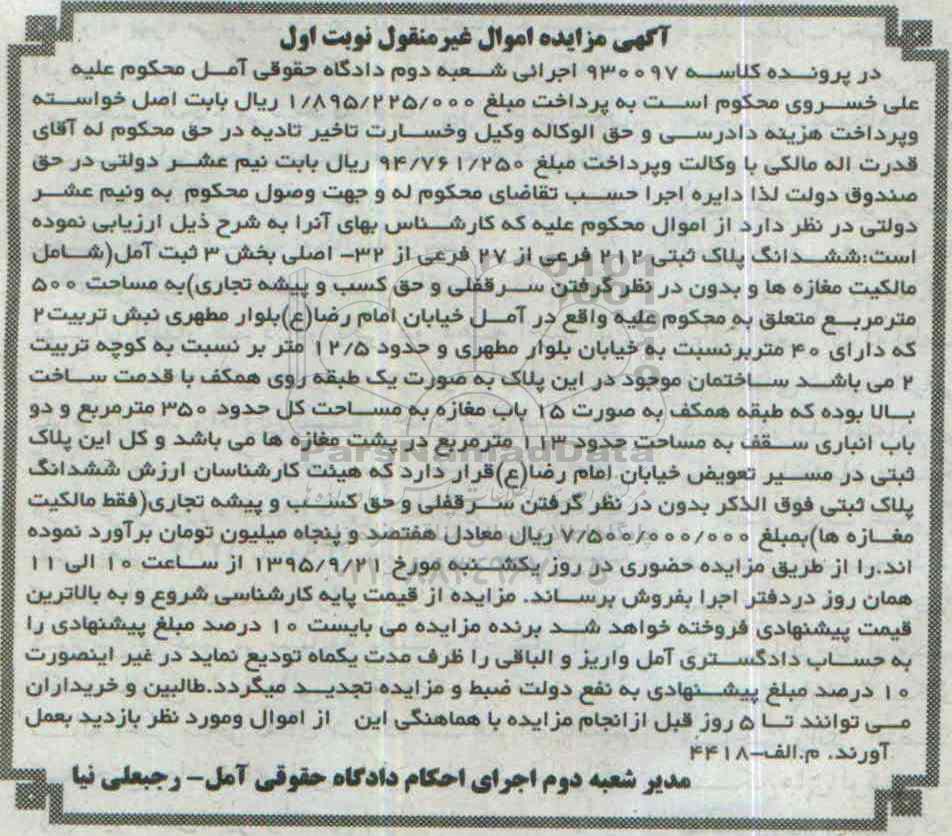 آگهی مزایده اموال غیرمنقول نوبت اول
در پرونده کلاسه ۹۳۰۰۹۷ اجرائی شعبه دوم دادگاه حقوقی آمل محکوم علیه
علی خسروی محکوم است به پرداخت مبلغ ۱/۸۹۵/۲۲۵/۰۰۰ ریال بابت اصل خواسته
وپرداخت هزینه دادرسی و حق الوکاله وکیل وخسارت تاخیر تادیه در حق محکوم له آقای
قدرت اله مالکی با وکالت وپرداخت مبلغ ۹۴/۷۶۱/۲۵۰ ریال بابت نیم عشر دولتی در حق
صندوق دولت لذا دایره اجرا حسب تقاضای محکوم له و جهت وصول محکوم به ونیم عشر
دولتی در نظر دارد از اموال محکوم علیه که کارشناس بهای آنرا به شرح ذیل ارزیابی نموده
است:ششدانگ پلاک ثبتی ۲۱۲ فرعی از ۲۷ فرعی از ۳۲- اصلی بخش ۳ ثبت آمل(شامل
مالکیت مغازه ها و بدون در نظر گرفتن سرقفلی و حق کسب و پیشه تجاری)به مساحت ۵۰۰
مترمربع متعلق به محکوم علیه واقع در آمل خیابان امام رضا(ع)بلوار مطهری نبش تربیت۲
که دارای ۴۰ متربرنسبت به خیابان بلوار مطهری و حدود ۱۲/۵ متر بر نسبت به کوچه تربیت
۲ می باشد ساختمان موجود در این پلاک به صورت یک طبقه روی همکف با قدمت ساخت
بالا بوده که طبقه همکف به صورت ۱۵ باب مغازه به مساحت کل حدود ۳۵۰ مترمربع و دو
باب انباری سقف به مساحت حدود ۱۱۳ مترمربع در پشت مغازه ها می باشد و کل این پلاک
ثبتی در مسیر تعویض خیابان امام رضا(ع)قرار دارد که هیئت کارشناسان ارزش ششدانگ
پلاک ثبتی فوق الذکر بدون در نظر گرفتن سرقفلی و حق کسب و پیشه تجاری(فقط مالکیت
مغازه ها)بمبلغ ۷/۵۰۰/۰۰۰/۰۰۰ ریال معادل هفتصد و پنجاه میلیون تومان برآورد نموده
اند.را از طریق مزایده حضوری در روز یکشنبه مورخ ۱۳۹۵/۹/۲۱ از ساعت ۱۰ الی ۱۱
همان روز دردفتر اجرا بفروش برساند. مزایده از قیمت پایه کارشناسی شروع و به بالاترین
قیمت پیشنهادی فروخته خواهد شد برنده مزایده می بایست ۱۰ درصد مبلغ پیشنهادی را
به حساب دادگستری آمل واریز و الباقی را ظرف مدت یکماه تودیع نماید در غیر اینصورت
۱۰ درصد مبلغ پیشنهادی به نفع دولت ضبط و مزایده تجدید میگردد.طالبین و خریداران
می توانند تا ۵ روز قبل ازانجام مزایده با هماهنگی این از اموال ومورد نظر بازدید بعمل
آورند. م.الف-۴۴۱۸
مدیر شعبه دوم اجرای احکام دادگاه حقوقی آمل- رجبعلی نیا
ParsNamadData